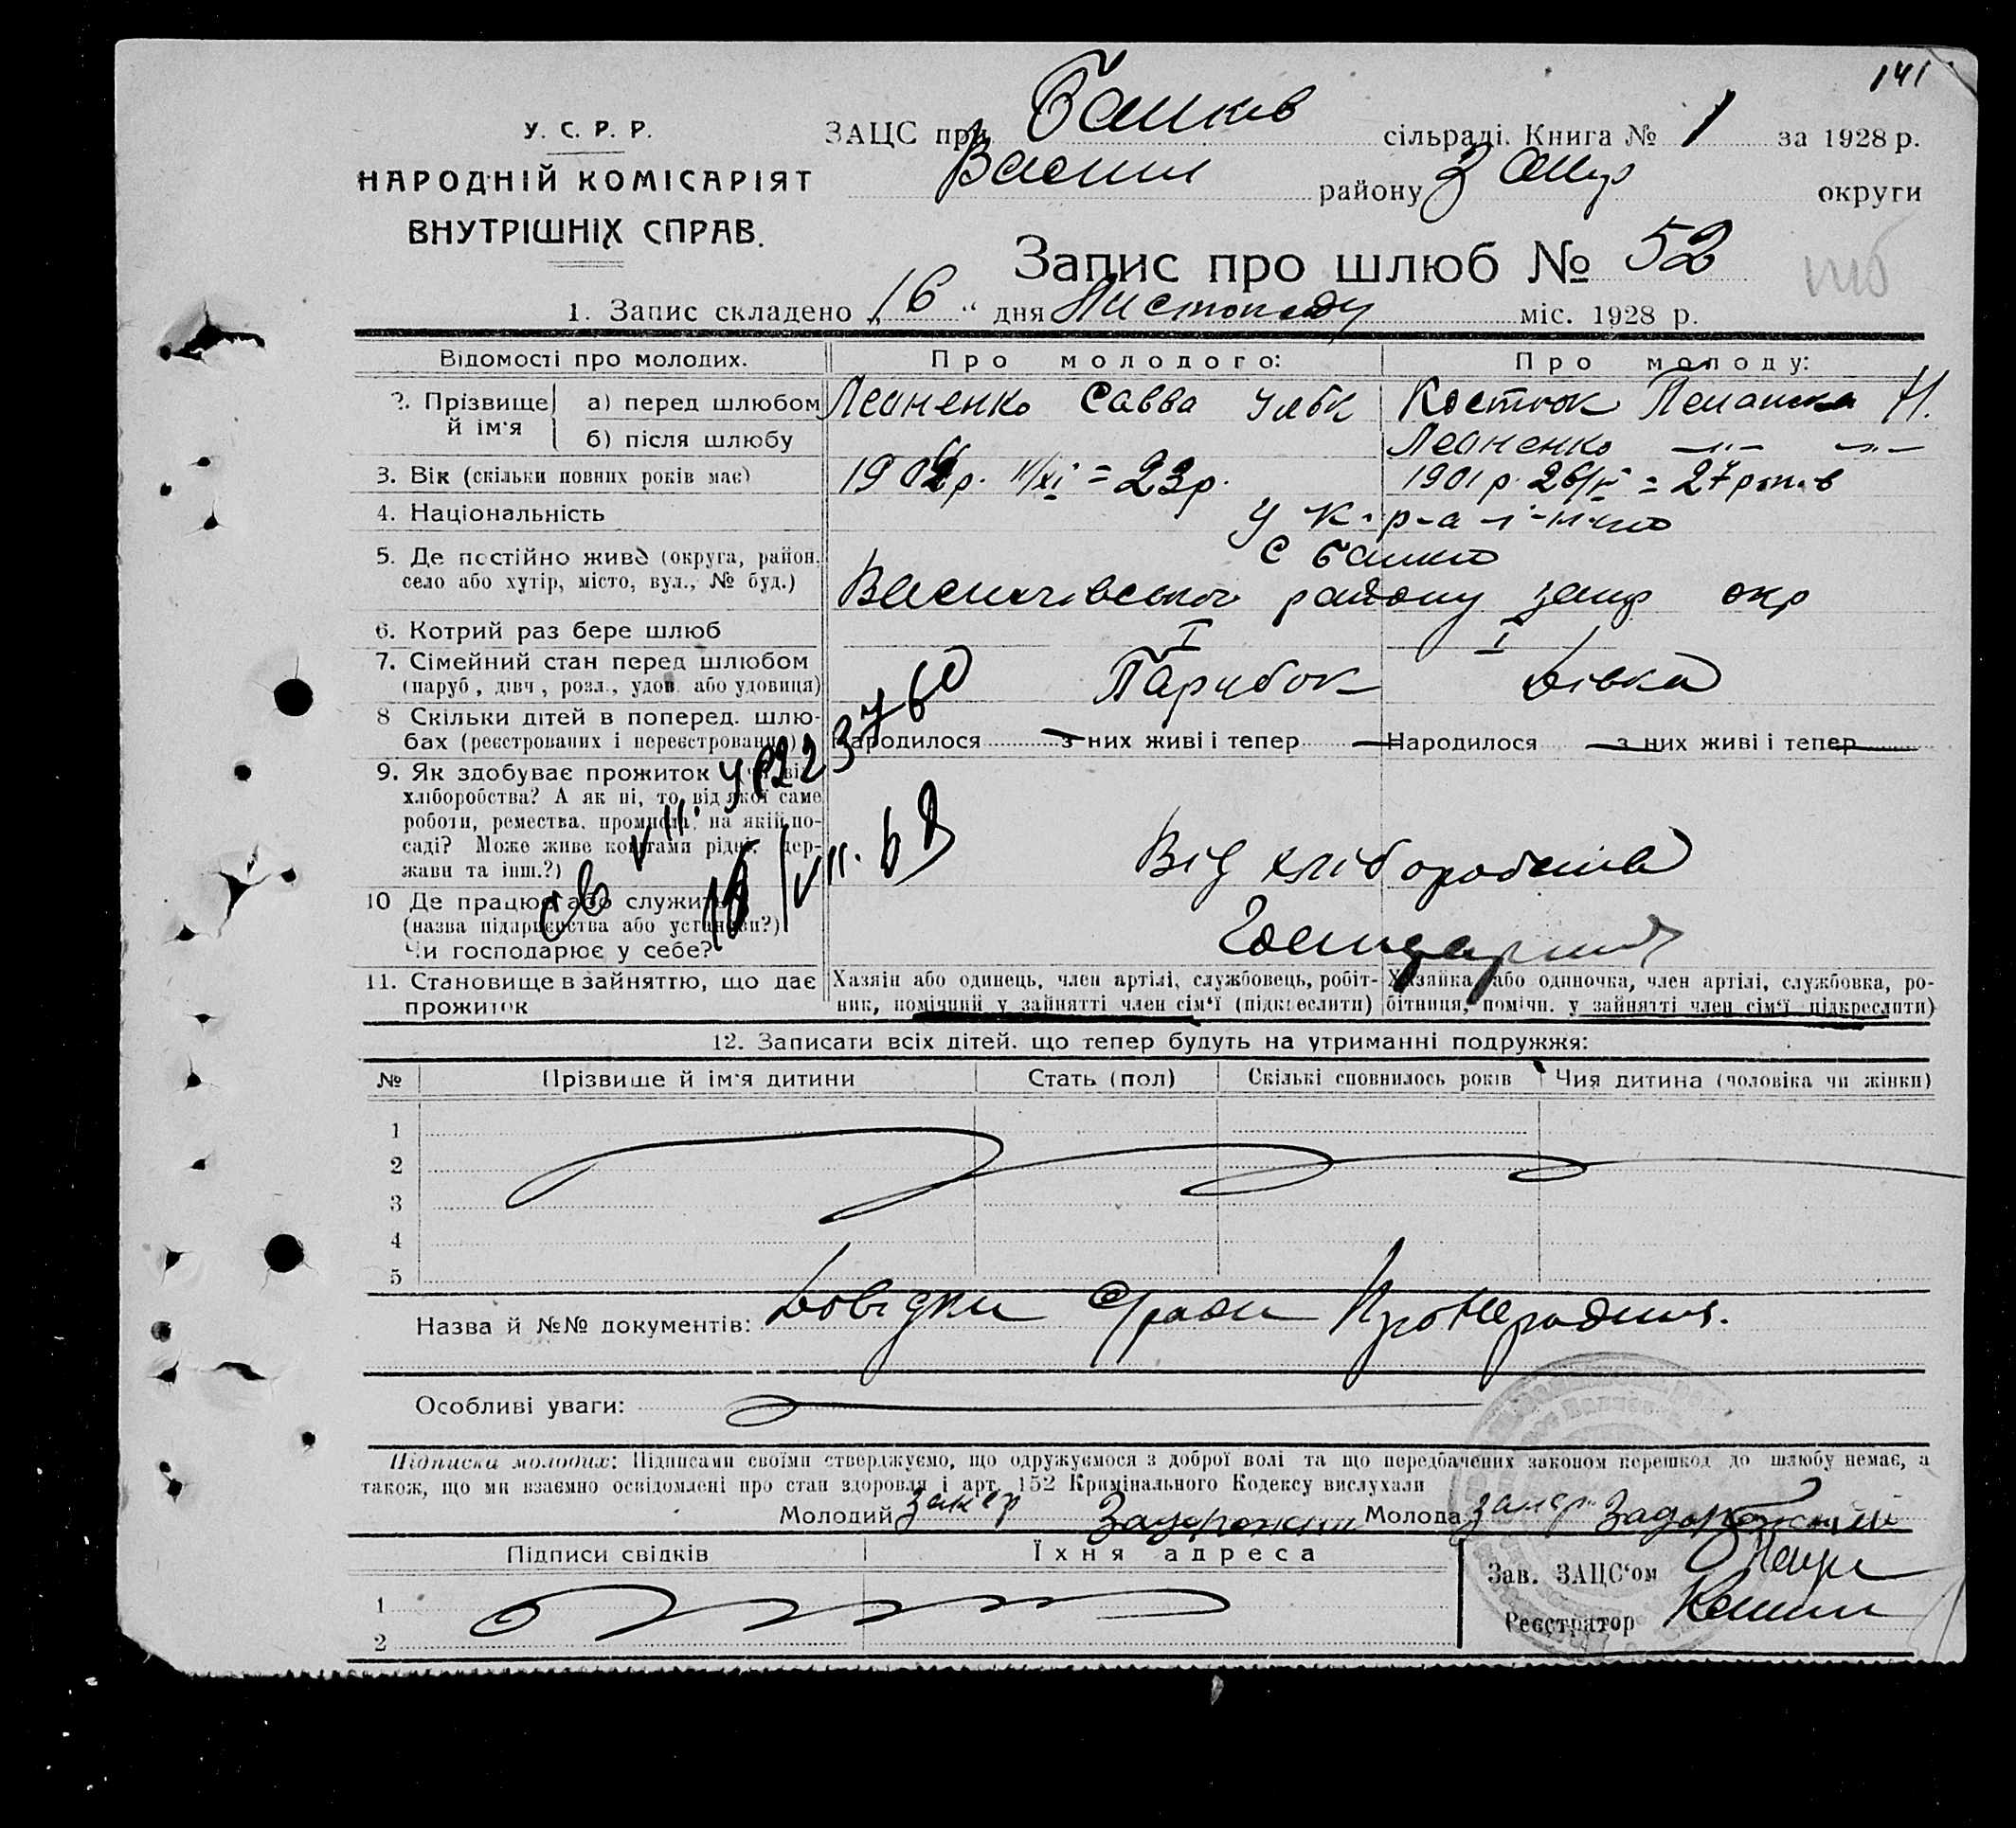 141
У. С. Р. Р.
НАРОДНІЙ КОМІСАРІЯТ
ВНУТРІШНІХ СПРАВ.
ЗАЦС при Балків сільраді. Книга № 1 за 1928 р.
Васил району Запор округи
Запис про шлюб № 52
1. Запис складено „16“ дня Листопаду міс. 1928 р.
Відомості про молодих. Про молодого: Про молоду:
2. Прізвище й ім'я а) перед шлюбом Леоненко Савва Костюк Н.
б) після шлюбу Леоненко —„— —„—
3. Вік (скільки повних років має) 11/XI = 23р. 1901 р. = 27 років
4. Національність У-к-р-а-ї-н-ці
5. Де постійно живе (округа, район, село або хутір, місто, вул., № буд.) с Балки
Василівського району Запор окр
6. Котрий раз бере шлюб I I
7. Сімейний стан перед шлюбом
(паруб., дівч., розл., удов. або удовиця) Парубок Дівка
8 Скільки дітей в поперед. шлюбах (реєстрованих і нереєстрованих) Народилося з них живі і тепер Народилося з них живі і тепер
9. Як здобуває прожиток (чи від хліборобства? А як ні, то від якої саме роботи, ремества, промисла, на якій посаді? Може живе коштами рідні, держави та інш.?) Від хліборобства
10 Де працює або служить
(назва підприємства або установи?)
Чи господарює у себе?
11. Становище в зайняттю, що дає прожиток
Хазяїн або одинець, член артілі, службовець, робітник, помічний у зайнятті член сім'ї (підкреслити)
Хазяйка або одиночка, член артілі, службовка, робітниця, помічн. у зайнятті член сім'ї підкреслити)
12. Записати всіх дітей, що тепер будуть на утриманні подружжя:
№ Прізвище й ім'я дитини Стать (пол) Скількі сповнилось років Чия дитина (чоловіка чи жінки)
1
2
3
4
5
Назва й №№ документів: Довідки С/ради
Особливі уваги:
Підписка молодих: Підписами своїми стверджуємо, що одружуємося з доброї волі та що передбачених законом перешкод до шлюбу немає, а
також, що ми взаємно освідомлені про стан здоровля і арт. 152 Кримінального Кодексу вислухали
Молодий Задорожний Молода Задорожний
Підписи свідків Їхня адреса
Зав. ЗАЦС'ом
1
Реєстратор
2